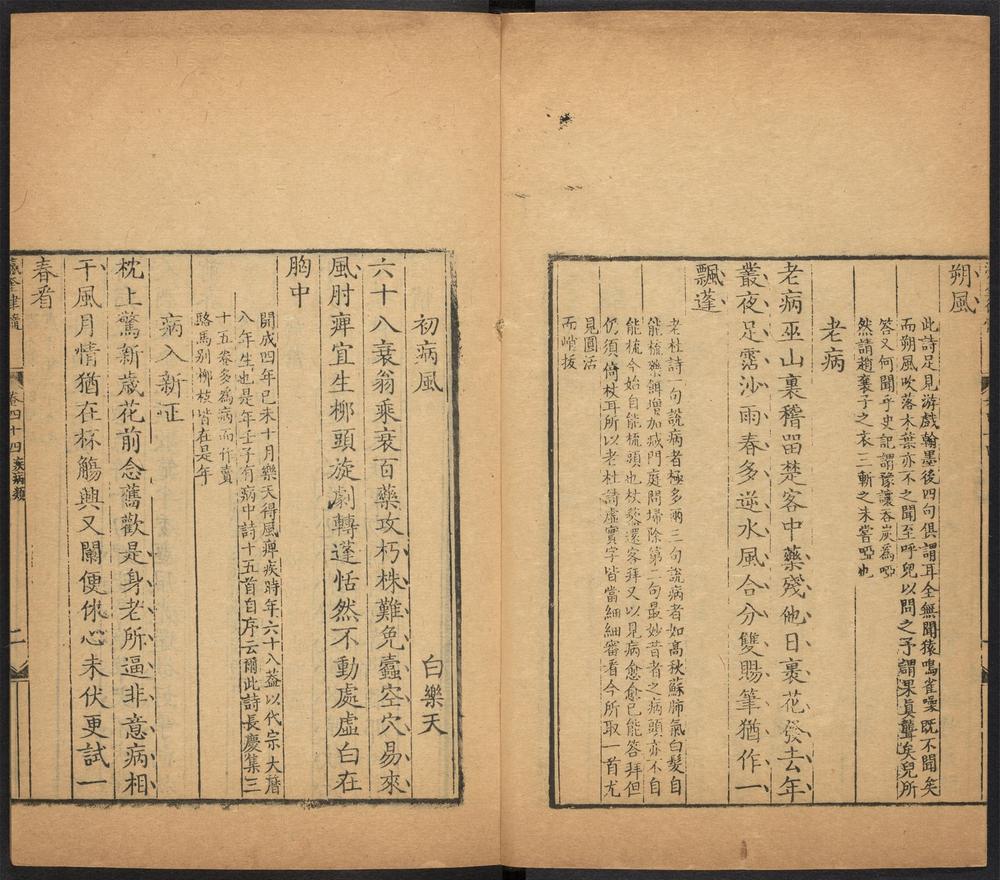 朔風
此詩足見游戲翰墨後四句俱謂耳全無聞猿鳴雀噪既不聞矣
而朔風吹落木葉亦不之聞至呼兒以問之予謂果真聾矣兒所
答又何聞乎史記謂豫讓吞炭為啞
然請趙襄子之衣三斬之未嘗啞也
老病
老病巫山裏稽畱楚客中藥殘他日裹花發去年
叢夜足霑沙雨春多逆水風合分雙賜筆猶作一
飄蓬
老杜詩一句說病者極多兩三句說病者如高秋蘇肺氣白髮自
能梳藥餌增加减門庭悶掃除第二句最妙昔者之病頭亦不自
能梳今始自能梳頭也杖藜還客拜又以見病愈愈已能答拜但
仍須倚杖耳所以老杜詩虛實字皆當細細審看今所取一首尤
見圓活
而峭拔
初病風
白樂天
六十八衰翁乘衰百藥攻朽株難免蠹空穴易來
風肘痺宜生栁頭旋劇轉蓬恬然不動處虛白在
胸中
開成四年已未十月樂天得風痺疾時年六十八葢以代宗大曆
八年生也是年壬子有病中詩十五首自序云爾此詩長慶集三
十五卷多為病而作賣
駱馬别栁枝皆在是年
病入新正
枕上驚新歲花前念舊歡是身老所逼非意病相
干風月情猶在杯觴興又闌便休心未伏更試一
春看
卷四十四
疾病類
二